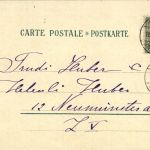 CARTE POSTALE · POSTKARTE
Trudi Huber
Heleni Huber
12 Neumünster
Z V